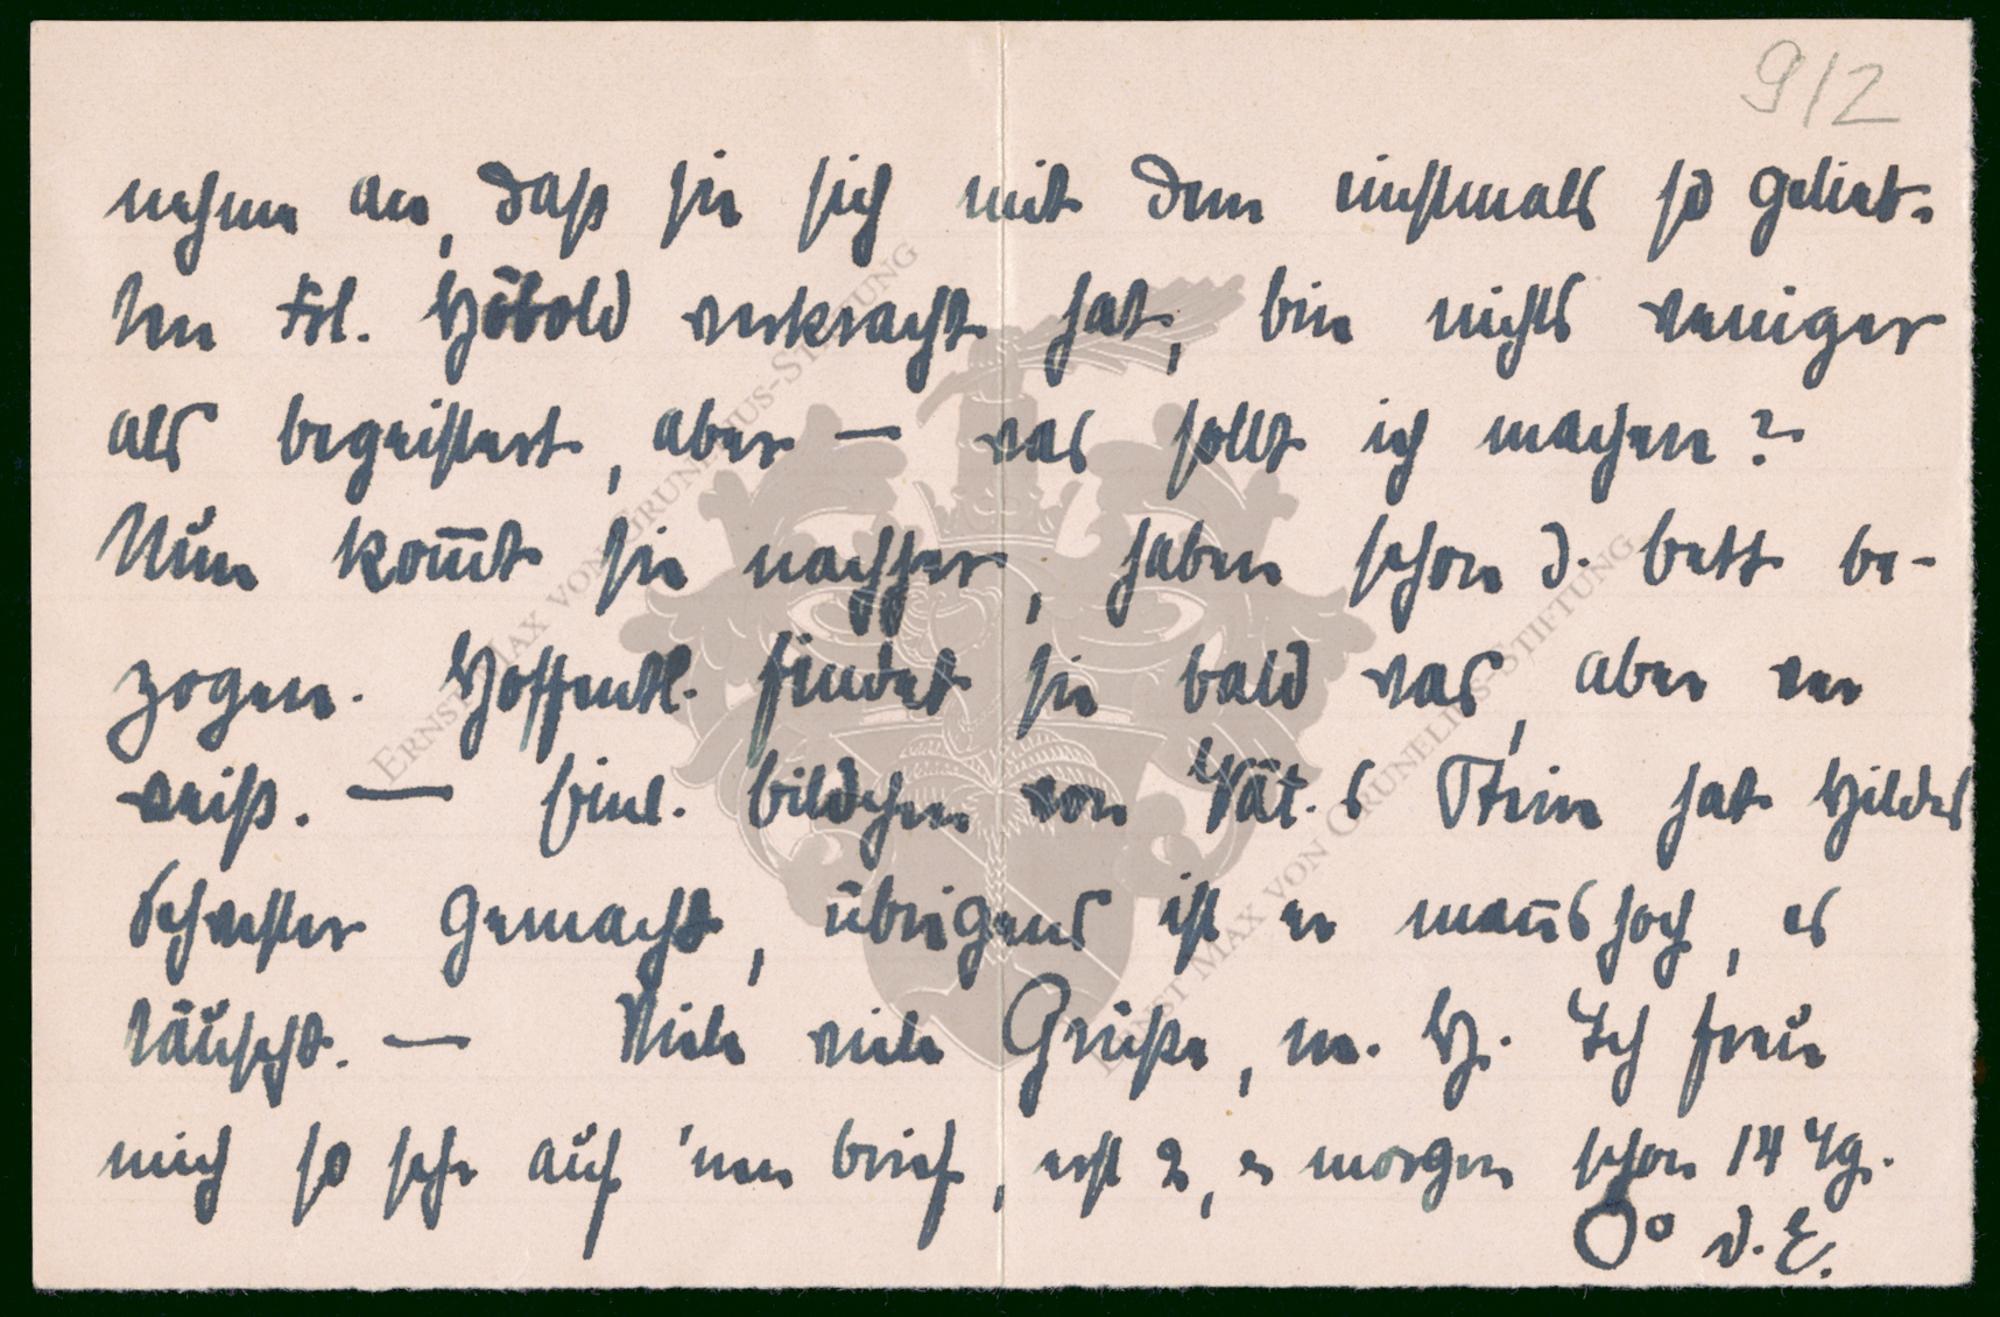 9/2
nehme an, daß sie sich mit dem einstmals so gelieb-
ten Frl. Höbold verkracht hat, bin nichts weniger
als begeistert, aber — was sollt ich machen?
Nun kom̅t sie nachher, haben schon d. bett be-
zogen. Hoffentl. findet sie bald was, aber wer
weiß. — einl. bildchen von Vät. s Hein hat Hildes
Schwester gemacht, übrigens ist er maushoch, es
täuscht. — Viele viele Grüße, m. H. Ich freue
mich so sehr auf 'nen brief, erst 2, u morgen schon 14 Tg.
d. E.
ERNST MAX VON GRUNELIUS-STIFTUNG
ERNST MAX VON GRUNELIUS-STIFTUNG